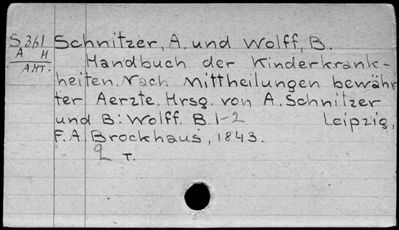 S 361 Schnitzer, A. und Wolff, B.
A H Handbuch der Kinderkrank-
AHT. heiten. Nach Mittheilungen bewähr
ter Aerzte. Hrsg. von A. Schnitzer
und B: Wolff. B. 1-2 Leipzig,
F. A. Brockhaus, 1843.
2 T.